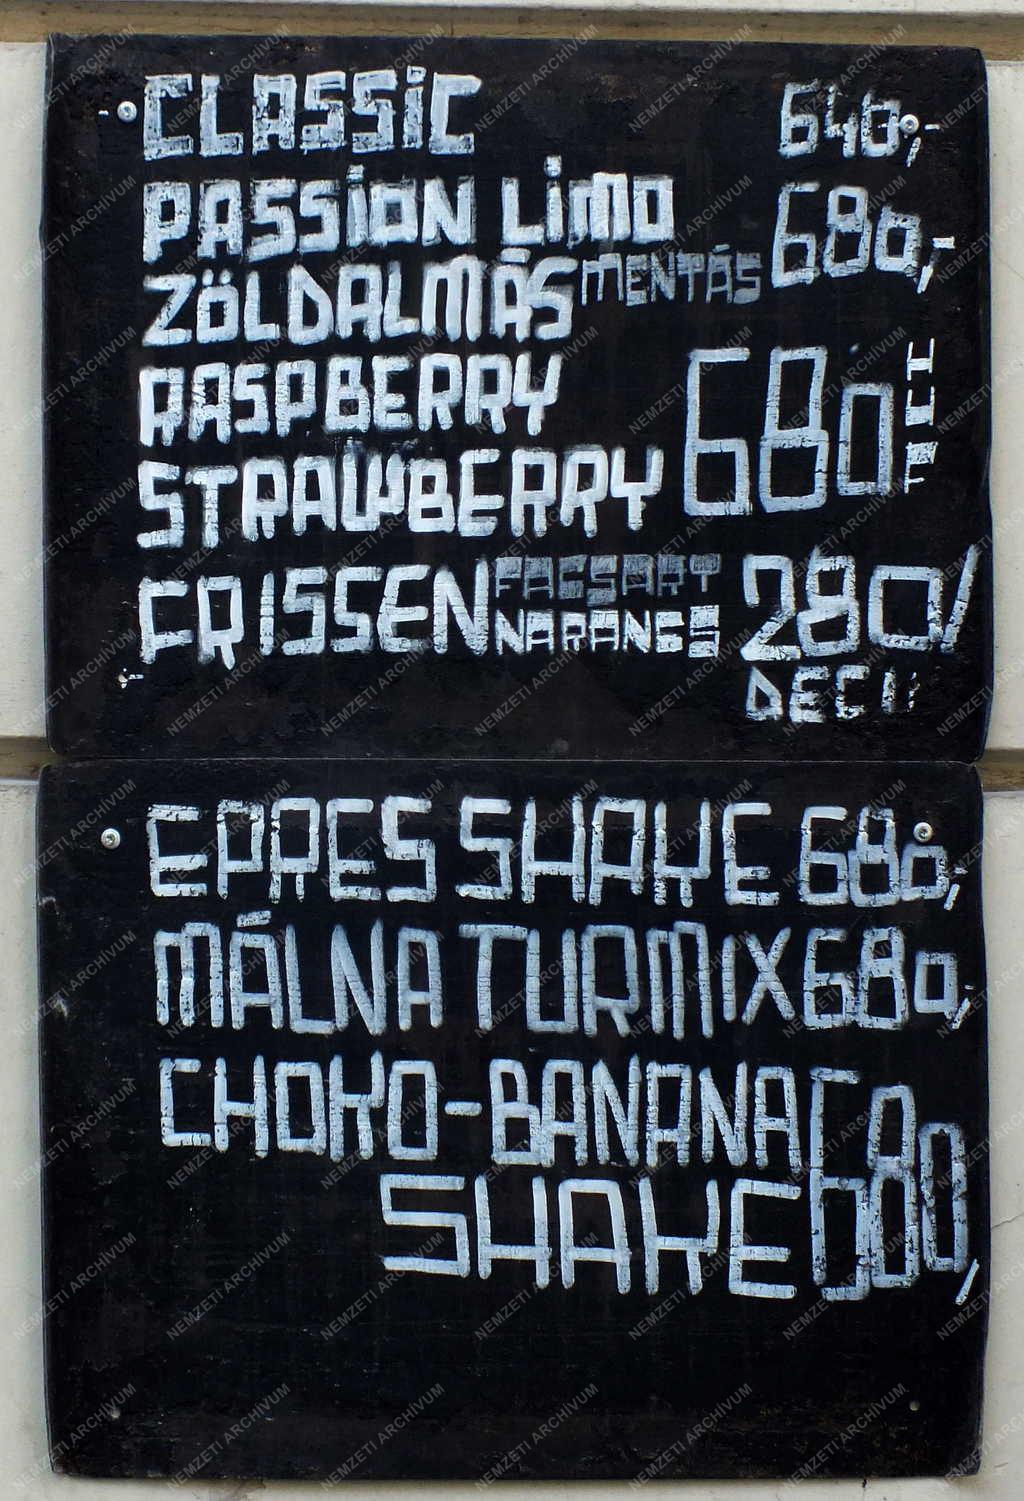 CLASSiC 640,-
PASSiON LiMO 680,-
ZÖLDALMÁS MENTÁS
RASPBERRY 680 HUF
STRAWBERRY
FRISSEN FACSART NARANCS 280/
DECI
EPRES SHAKE 680,-
MÁLNA TURMIX 680,-
CHOKO-BANANA SHAKE 680,-
NEMZETI ARCHÍVUM